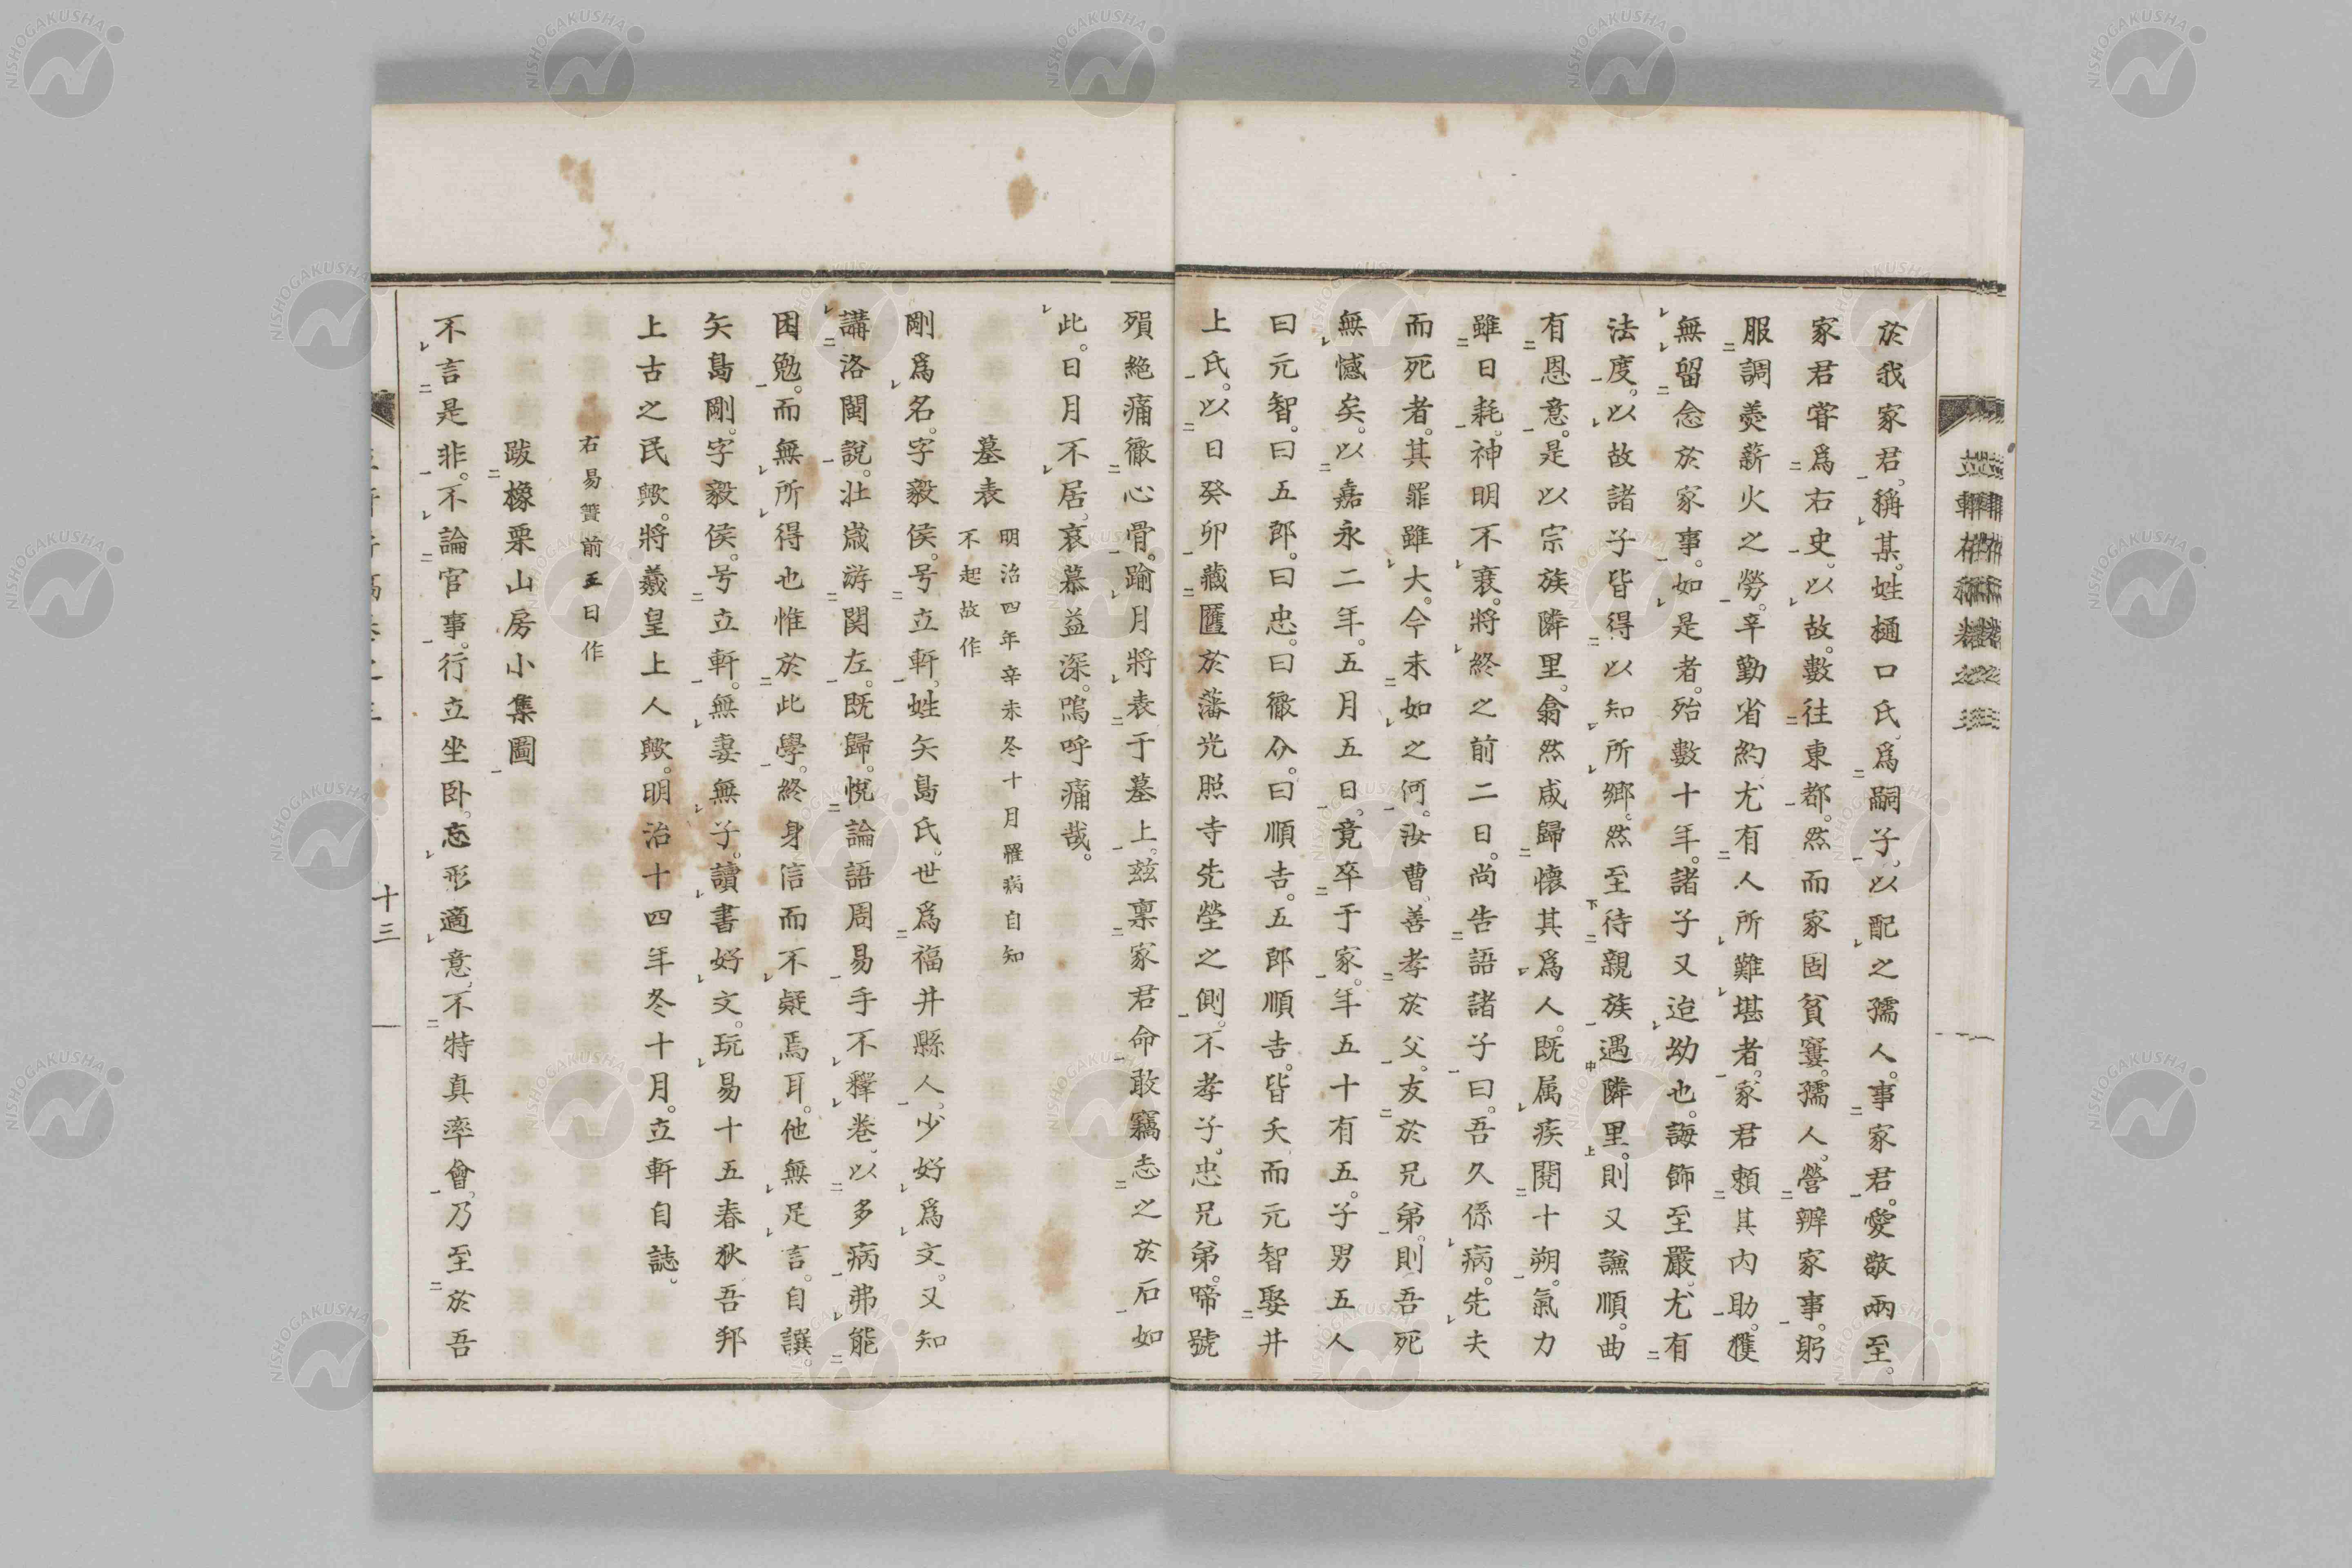 於我家君。稱某。姓樋口氏。爲嗣子。以配之孺人。事家君。愛敬兩至。
家君甞爲右史。以故。數往東都。然而家固貧窶。孺人。營辦家事。躬
服調爨薪火之勞。辛勤省約。尤有人所難堪者。家君賴其内助。獲
無留念於家事。如是者。殆數十年。諸子又迨幼也。誨飾至嚴。尤有
法度。以故諸子皆得以知所郷。然至待親族遇隣里。則又謙順。曲
有恩意。是以宗族隣里。翕然咸歸懷其爲人。既属疾閱十朔。氣力
雖日耗。神明不衰。將終之前二日。尚告語諸子曰。吾久係病。先夫
而死者。其罪雖大。今未如之何。汝曹。善孝於父。友於兄弟。則吾死
無憾矣。以嘉永二年。五月五日。竟卒于家。年五十有五。子男五人
曰元智。曰五郎。曰忠。曰徹介。曰順吉。五郎順吉。皆夭而元智娶井
上氏。以日癸卯。藏匶於藩光照寺先塋之側。不孝子。忠兄弟。啼號
殞絶痛徹心骨。踰月將表于墓上。玆稟家君命敢竊志之於石如
此。日月不居。哀慕益深。嗚呼痛哉。
墓表 明治四年辛未冬十月罹病自知
不起故作
剛爲名。字毅侯。号立軒。姓矢島氏。世爲福井縣人。少好爲文。又知
講洛閩說。壯歲游関左。既歸。悅論語周易手不釋卷。以多病弗能
困勉。而無所得也惟於此學。終身信而不疑焉耳。他無足言。自譔。
矢島剛。字毅侯。号立軒。無妻無子。讀書好文。玩易十五春秋吾邦
上古之民歟。將羲皇上人歟。明治十四年冬十月。立軒自誌。
右易簀前五日作
跋橡栗山房小集圖
不言是非。不論官事。行立坐卧。忘形適意。不特真率會。乃至於吾
十三
NISHOGAKUSHA